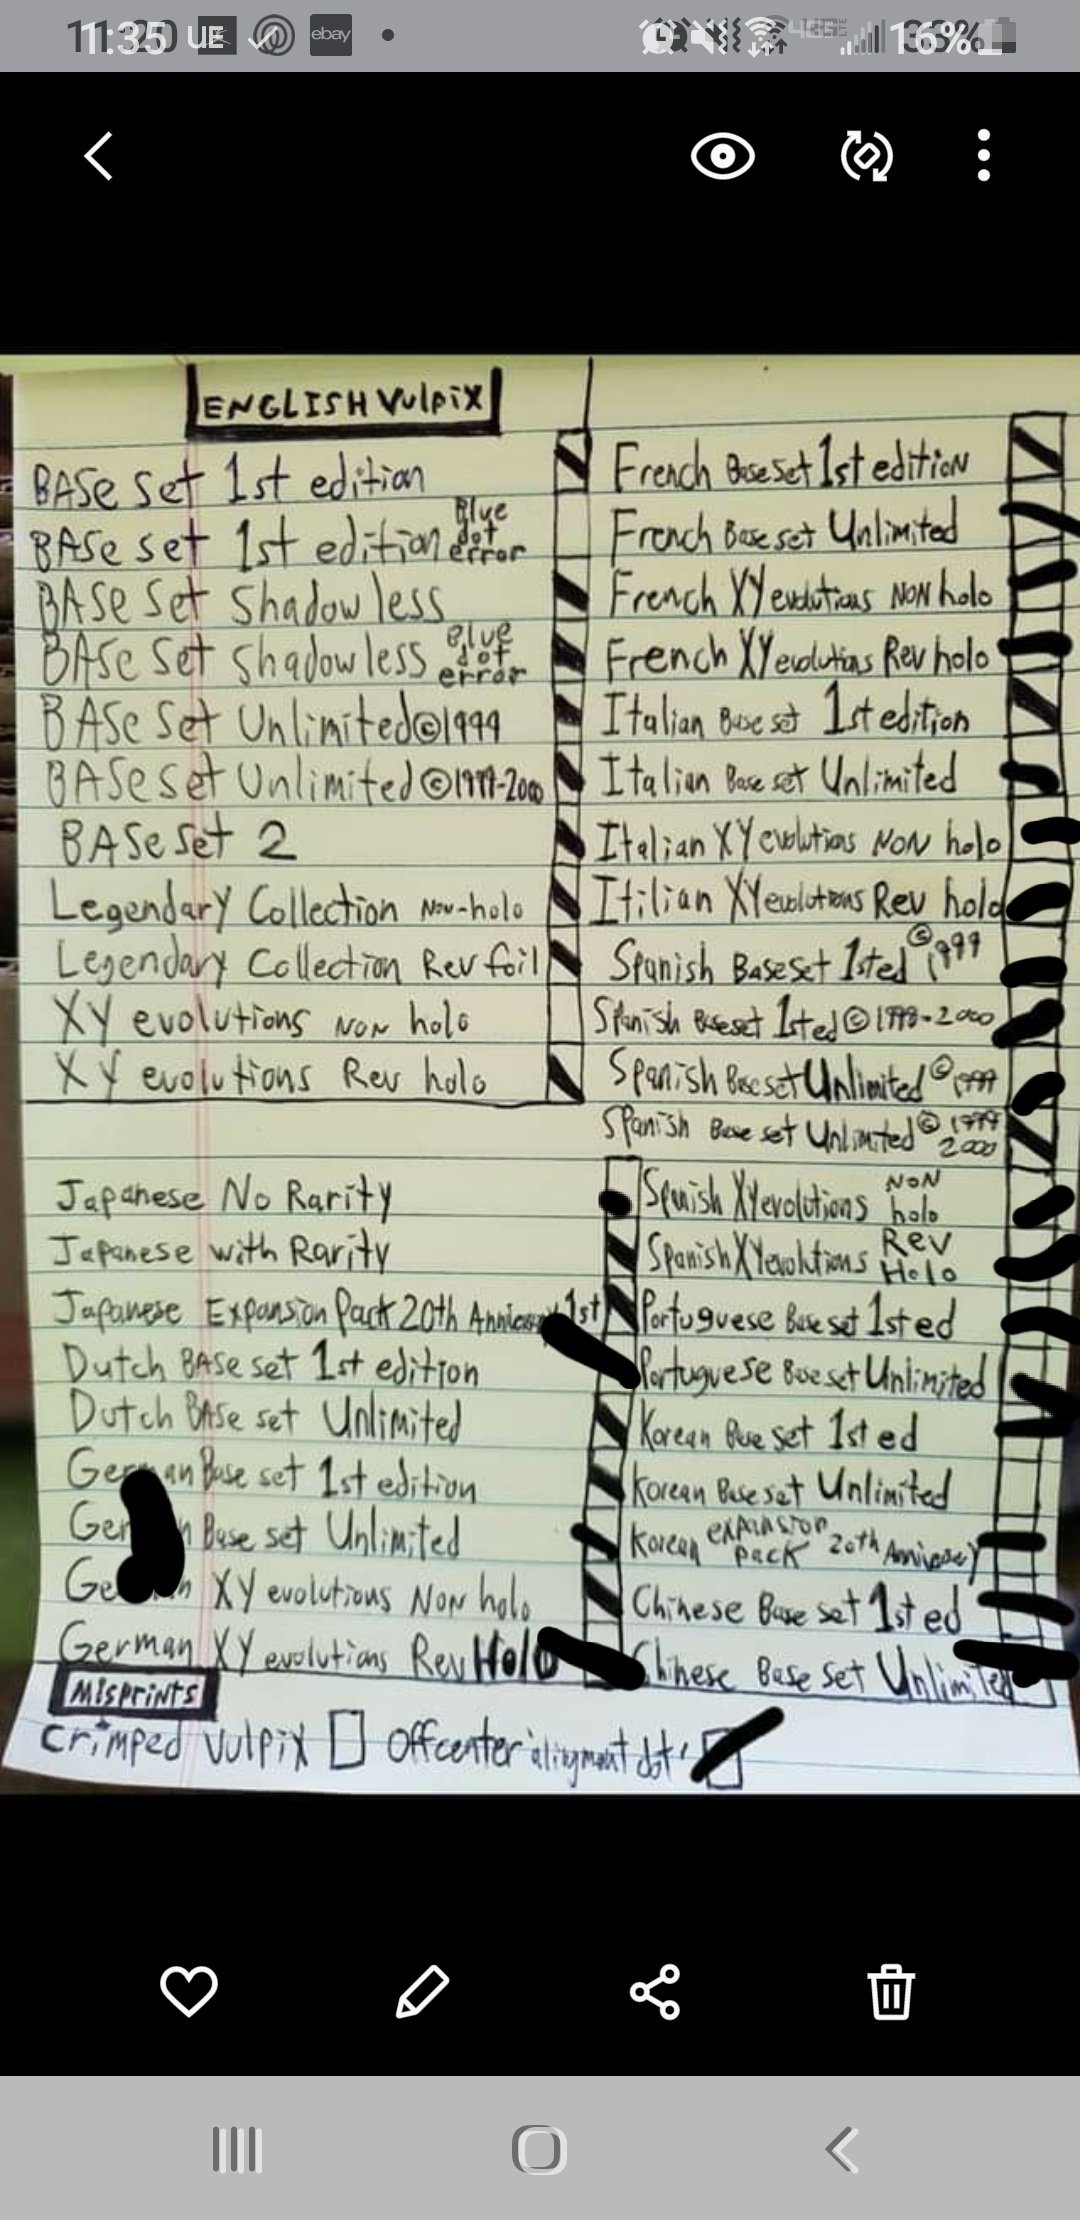 UE
ebay
ENGLISH Vulpix
BASe Set 1st edition
BASe set 1st edition Blue dot error
BASe Set Shadowless
BASe Set Shadowless Blue dot error
BASe Set Unlimited ©1999
BASe set Unlimited ©1999-2000
BASe Set 2
Legendary Collection Non-holo
Legendary Collection Rev foil
XY evolutions NON holo
XY evolutions Rev holo
Japanese No Rarity
Japanese with Rarity
Japanese Expansion Pack 20th 1st
Dutch BASe set 1st edition
Dutch BASe set Unlimited
German Base set 1st edition
Base set Unlimited
XY evolutions NoN holo
German XY evolutions Rev Holo
French Base Set 1st editioN
French Base set Unlimited
French XY evolutions NON holo
French XY evolutions Rev holo
Italian Base set 1st edition
Italian Base set Unlimited
Italian XY evolutions NON holo
Itilian XY evolutions Rev holo
Spanish Base Set 1st ed ©1999
Spanish Base set 1st ed ©1999-2000
Spanish Base set Unlimited ©1999
Spanish Base set Unlimited ©1999 2000
Spanish XY evolutions NoN holo
Spanish XY evolutions Rev Holo
Portuguese Base set 1st ed
Portuguese Base set Unlimited
Korean Base set 1st ed
Korean Base set Unlimited
Korean expansion pack 20th
Chinese Base set 1st ed
Chinese Base set Unlimited
Misprints
Crimped Vulpix Offcenter dot'